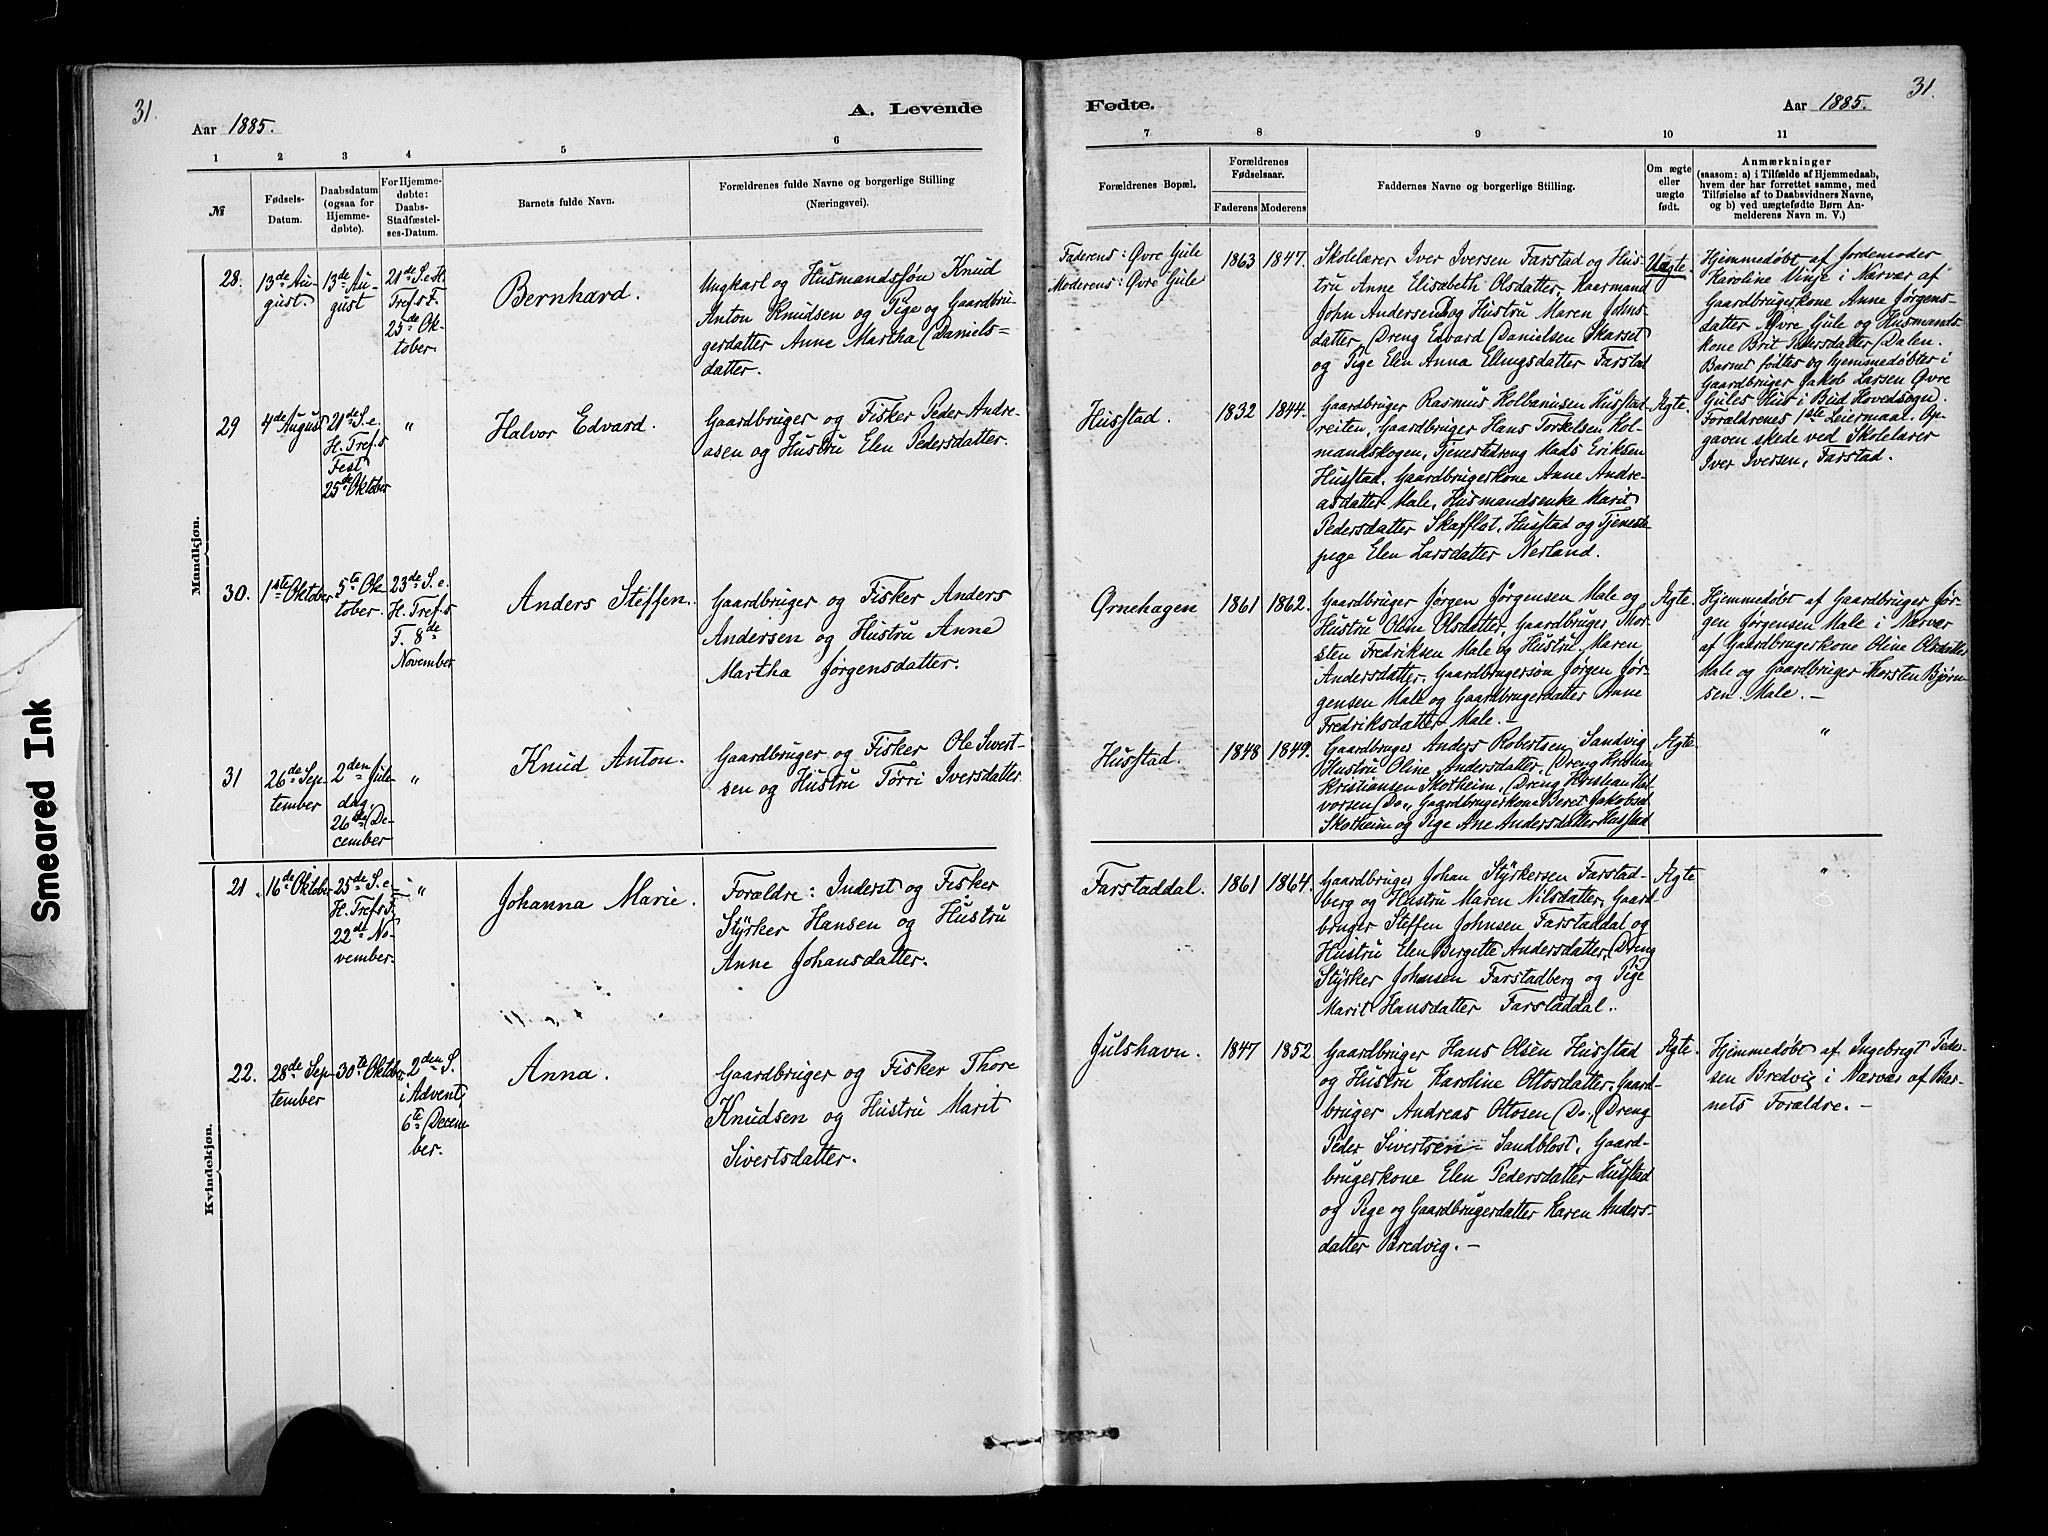 31.
Aar 1885.
A. Levende
1
2
3
4
5
6
№
Fødsels-
Datum.
Daabsdatum
(ogsaa for
Hjemme-
døbte).
For Hjemme-
døbte:
Daabs-
Stadfæstel-
ses-Datum.
Barnets fulde Navn.
Forældrenes fulde Navne og borgerlige Stilling
(Næringsvei).
Mandkjøn.
28.
13de Au-
gust.
13de Au-
gust
21de S. e. H.
Tref.s F.
25de Ok-
tober.
Bernhard.
Ungkarl og Husmandssøn Knud
Anton Knudsen og Pige og Gaardbru-
gerdatter Anne Martha Daniels-
datter.
29
4de August
21de S. e.
H. Tref.s
Fest
25de Oktober
"
Halvor Edvard.
Gaardbruger og Fisker Peder Andre-
asen og Hustru Elen Pedersdatter.
30.
1ste Oktober
5te Ok-
tober.
23de S. e.
H. Tref.s
F. 8de
November
Anders Steffen.
Gaardbruger og Fisker Anders
Andersen og Hustru Anne
Martha Jørgensdatter.
31
26de Sep-
tember
2den Jule-
dag,
26de De-
cember
"
Knud Anton.
Gaardbruger og Fisker Ole Sivert-
sen og Hustru Torri Iversdatter
Kvindekjøn.
21.
16de Oktober
25de S. e.
H. Tref.s F.
22de No-
vember.
"
Johanna Marie.
Forældre: Inderst og Fisker
Styrker Hansen og Hustru
Anne Johansdatter.
22.
28de Sep-
tember
30te Oktober
2den S.
i Advent,
6te Decem-
ber.
Anna.
Gaardbruger og Fisker Thore
Knudsen og Hustru Marit
Sivertsdatter.
Fødte.
Aar 1885.
31.
7
8
9
10
11
Forældrenes Bopæl.
Forældrenes
Fødselsaar.
Faderens
Moderens
Faddernes Navne og borgerlige Stilling.
Om ægte
eller
uægte
født.
Anmærkninger
(saasom: a) i Tilfælde af Hjemmedaab,
hvem der har forrettet samme, med
Tilføielse af to Daabsvidners Navne,
og b) ved uægtefødte Børn An-
melderens Navn m. V.)
Faderens: Øvre Gule
Moderens: Øvre Gule
1863
1847.
Skolelærer Iver Iversen Farstad og Hus-
tru Anne Elisabeth Olsdatter, Kaarmand
John Andersen Do og Hustru Maren Johns-
datter, Dreng Edvard Danielsen Skarset
og Pige Elen Anna Ellingsdatter Farstad
Uægte
Hjemmedøbt af Jordemoder
Karoline Vinje i Nærvær af
Gaardbrugerkone Anne Jørgens-
datter Øvre Gule og Husmands-
kone Brit Pedersdatter Dalen.
Barnet fødtes og hjemmedøbtes i
Gaardbruger Jakob Larsen Øvre
Gules Hus i Bud Hovedsogn.
Forældrenes 1ste Leiermaal. Op-
gaven skede ved Skolelærer
Iver Iversen, Farstad.
Husstad.
1832
1844.
Gaardbruger Rasmus Kolbanusen Husstad-
reiten, Gaardbruger Hans Torkelsen Kol-
mandskogen, Tjenestedreng Mads Eriksen
Husstad, Gaardbrugerkone Anne Andre-
asdatter Male, Husmandsenke Marit
Pedersdatter Skafflot, Husstad og Tjeneste-
pige Elen Larsdatter Nerland.
Ægte.
Ørnehagen
1861
1862.
Gaardbruger Jørgen Jørgensen Male og
Hustru Oline Olsdatter, Gaardbruger Thor-
sten Fredriksen Male og Hustru Maren
Andersdatter, Gaardbrugersøn Jørgen Jør-
gensen Male og Gaardbrugerdatter Anne
Fredriksdatter Male. —
Ægte.
Hjemmedøbt af Gaardbruger Jør-
gen Jørgensen Male i Nærvær
af Gaardbrugerkone Oline Olsdatter
Male og Gaardbruger Thorsten Bjørn-
sen Male. —
Husstad.
1848
1849.
Gaardbruger Anders Robertsen Sandvig
Hustru Oline Andersdatter, Dreng Kristian
Kristiansen Skotheim, Dreng Kristian Hal-
vorsen Do, Gaardbrugerkone Beret Jakobsd.
Skotheim og Pige Ane Andersdatter Husstad
Ægte.
"
Farstaddal.
1861
1864.
Gaardbruger Johan Styrkersen Farstad-
berg og Hustru Maren Nilsdatter, Gaard-
bruger Steffen Johnsen Farstaddal og
Hustru Elen Bergitte Andersdatter, Dreng
Styrker Johnsen Farstadberg og Pige
Marit Hansdatter Farstaddal.
Ægte
"
Julshavn.
1847
1852.
Gaardbruger Hans Olsen Husstad
og Hustru Karoline Ottosdatter, Gaard-
bruger Andreas Ottosen Do, Dreng
Peder Sivertsen Sandblost, Gaard-
brugerkone Elen Pedersdatter Husstad
og Pige og Gaardbrugerdatter Karen Anders-
datter Bredvig. —
Ægte.
Hjemmedøbt af Ingebrigt Peder-
sen Bredvig i Nærvær af Bar-
nets Forældre. —
Smeared Ink